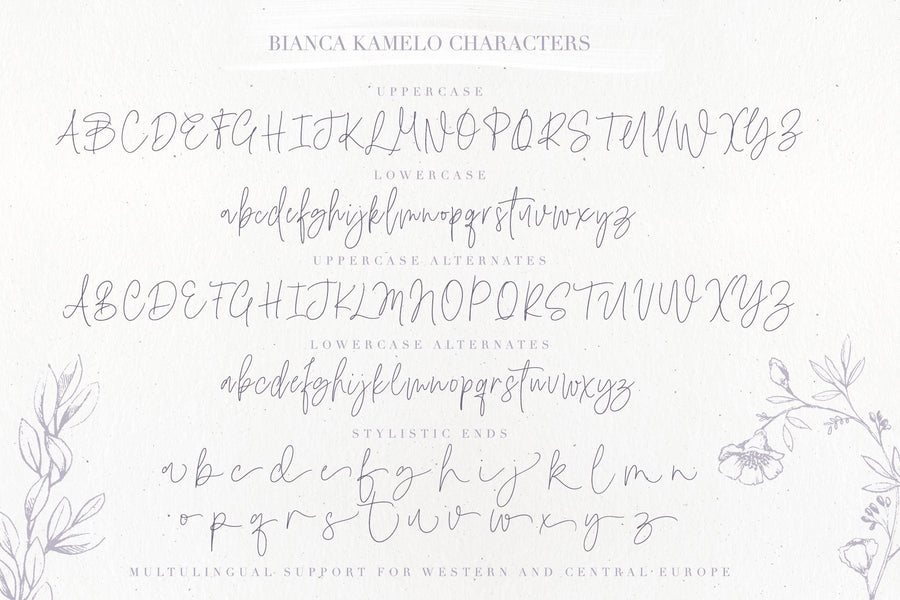 BIANCA KAMELO CHARACTERS
UPPERCASE
ABCDEFGHIJKLMNOPQRSTUVWXYZ
LOWERCASE
abcdefghijklmnopqrstuvwxyz
UPPERCASE ALTERNATES
ABCDEFGHIJKLMNOPQRSTUVWXYZ
LOWERCASE ALTERNATES
abcdefghijklmnopqrstuvwxyz
STYLISTIC ENDS
a b c d e f g h i j k l m n
o p q r s t u v w x y z
MULTULINGUAL SUPPORT FOR WESTERN AND CENTRAL EUROPE